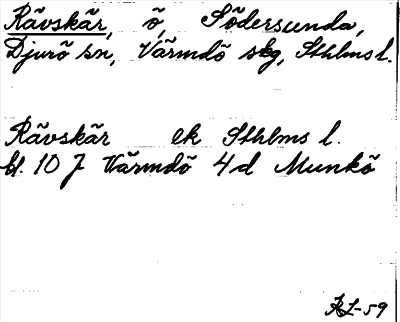 Rävskär, ö, Södersunda,
Djurö sn, Värmdö skg, Sthlms l.
Rävskär ek Sthlms l.
bl. 10 J Värmdö 4d Munkö
RL-59